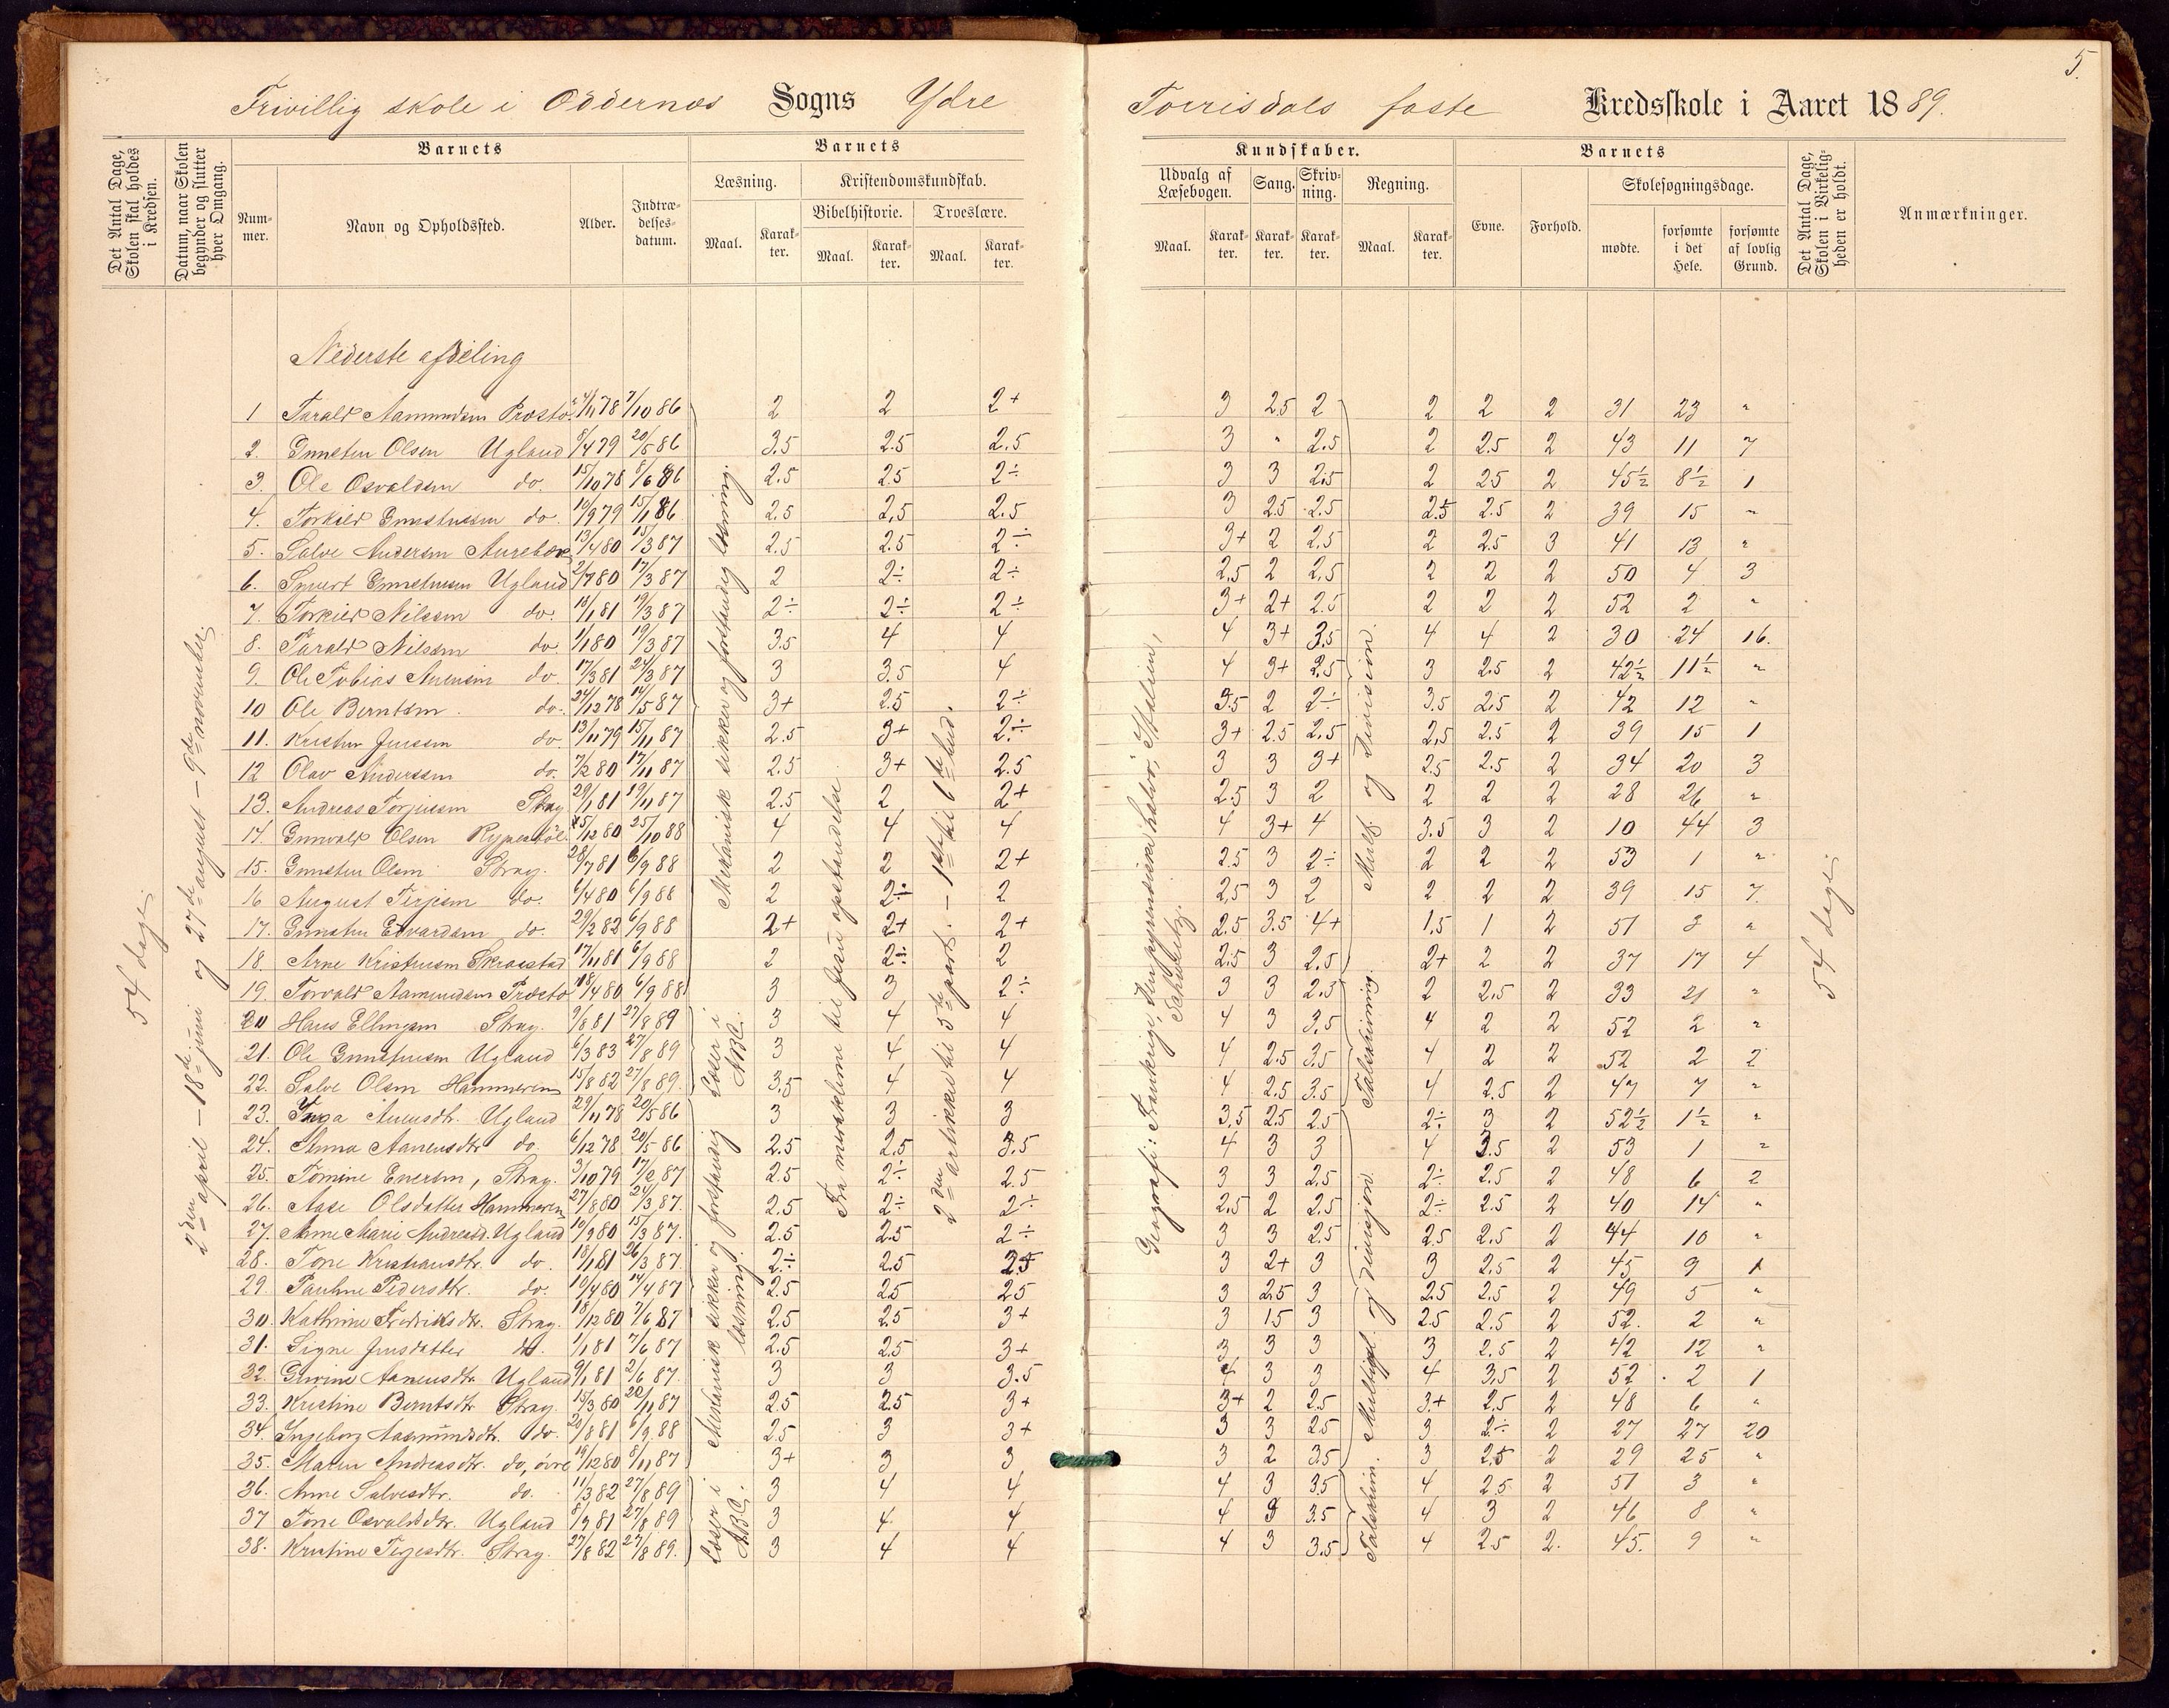 5.
Frivillig skole i Oddernes Sogns Ydre Torrisdals faste Kredsskole i Aaret 1889.
Det Antal Dage, Skolen skal holdes i Kredsen.
Datum, naar Skolen begynder og slutter hver Omgang.
Barnets
Num-mer.
Navn og Opholdssted.
Alder.
Indtræ-delses-datum.
Barnets
Læsning.
Maal.
Karak-ter.
Kristendomskundskab.
Bibelhistorie.
Maal.
Karak-ter.
Troeslære.
Maal.
Karak-ter.
Kundskaber.
Udvalg af Læsebogen.
Maal.
Karak-ter.
Sang.
Karak-ter.
Skriv-ning.
Karak-ter.
Regning.
Maal.
Karak-ter.
Barnets
Evne.
Forhold.
Skolesøgningsdage.
mødte.
forsømte i det Hele.
forsømte af lovlig Grund.
Det Antal Dage, Skolen i Virkelig-heden er holdt.
Anmærkninger.
Nederste afdeling
54 dage.
2den april – 18de juni og 27de august – 9de november.
Mekanisk sikker og forstandig læsning.
Læser i ABC.
Mekanisk sikker og forstandig læsning.
Læser i ABC.
Fra miraklerne til Jesu opstandelse.
2den artikkel til 5te part. – 1ste til 6te bud.
Geografi: Frankrige, den pyrenæiske halvø, Italien, Schweitz.
Mult. og Division.
Talskrivning.
Multipl. og Divisjon.
Talskriv.
54 dage.
1 Tarald Aamundsen Præstø 4/11 78 7/10 86 2 2 2+ 3 2.5 2 2 2 2 31 23 "
2. Gunsten Olsen Ugland 8/4 79 20/5 86 3.5 2.5 2.5 3 " 2.5 2 2.5 2 43 11 7
3. Ole Osvaldsen do. 15/10 78 8/6 86 2.5 2.5 2÷ 3 3 2.5 2 2.5 2 45½ 8½ 1
4. Torkild Gunstensen do. 10/9 79 15/1 86 2.5 2.5 2.5 3 2.5 2.5 2.5 2.5 2 39 15 "
5. Salve Andersen Aurebæk 13/4 80 15/3 87 2.5 2.5 2÷ 3+ 2 2.5 2 2.5 3 41 13 "
6. Syvert Gunstensen Ugland 2/7 80 17/3 87 2 2÷ 2÷ 2.5 2 2.5 2 2 2 50 4 3
7. Torkild Nilssen do. 10/1 81 19/3 87 2÷ 2÷ 2÷ 3+ 2+ 2.5 2 2 2 52 2 "
8. Tarald Nilssen do. 1/1 80 19/3 87 3.5 4 4 4 3+ 3.5 4 4 2 30 24 16.
9. Ole Tobias Anensen do. 17/3 81 24/3 87 3 3.5 4 4 3+ 2.5 3 2.5 2 42½ 11½ "
10 Ole Berntsen do. 24/12 78 14/5 87 3+ 2.5 2÷ 3.5 2 2÷ 3.5 2.5 2 42 12 "
11. Kristen Jenssen do. 13/11 79 15/11 87 2.5 3+ 2÷ 3+ 2.5 2.5 2.5 2.5 2 39 15 1
12 Olav Anderssen do. 7/2 80 17/11 87 2.5 3+ 2.5 3 3 3+ 2.5 2.5 2 34 20 3
13. Andreas Torjussen Stray 29/1 81 19/11 87 2.5 2 2+ 2.5 3 2 2 2 2 28 26 "
14. Gunvald Olsen Rypestøl 25/12 80 25/10 88 4 4 4 4 3+ 4 3.5 3 2 10 44 3
15. Gunsten Olsen Stray. 28/7 81 6/9 88 2 2 2+ 2.5 3 2÷ 2 2 2 53 1 "
16 August Terjesen do. 6/4 80 6/9 88 2 2÷ 2 2.5 3 2 2 2 2 39 15 7.
17. Gunsten Edvardsen do. 29/2 82 6/9 88 2+ 2+ 2+ 2.5 3.5 4+ 1.5 1 2 51 3 "
18. Arne Kristensen Skraastad 17/11 81 6/9 88 2 2÷ 2 2.5 3 2.5 2+ 2 2 37 17 4
19. Torvald Aamundsen Præstø 18/4 80 6/9 88 3 3 2÷ 3 3 2.5 2 2.5 2 33 21 "
20 Hans Ellingsen Stray. 9/8 81 27/8 89 3 4 4 4 3 3.5 4 2 2 52 2 "
21. Ole Gunstensen Ugland 6/3 83 27/8 89 3 4 4 4 2.5 3.5 4 2 2 52 2 2
22. Salve Olsen Hammeren 15/8 82 27/8 89. 3.5 4 4 4 2.5 3.5 4 2.5 2 47 7 "
23. Inga Anensdtr. Ugland 29/11 78 20/5 86 3 3 3 3.5 2.5 2.5 2÷ 3 2 52½ 1½ "
24. Anna Aanensdtr do. 6/12 78 20/5 86 2.5 2.5 3.5 4 3 3 4 3.5 2 53 1 "
25. Tomine Enersen, Stray. 3/10 79 17/2 87 2.5 2÷ 2.5 3 3 2.5 2÷ 2.5 2 48 6 2
26. Aase Olsdatter Hammeren 27/8 80 24/3 87. 2.5 2÷ 2÷ 2.5 2 2.5 2÷ 2.5 2 40 14 "
27. Anne Marie Andreasd. Ugland 10/9 80 15/3 87. 2.5 2.5 2÷ 3 3 2.5 2.5 2.5 2 44 10 "
28. Tone Kristiansdtr. do. 18/1 81 26/3 87. 2÷ 2.5 2.5 3 2+ 3 3 2.5 2 45 9 1
29. Pauline Pedersdtr. do. 10/4 80 14/4 87 2.5 2.5 2.5 3 2.5 3 2.5 2.5 2 49 5 "
30. Kathrine Fredriksdtr. Stray. 18/12 80 7/6 87 2.5 2.5 3+ 3 1.5 3 2.5 2.5 2 52. 2 "
31. Signe Jensdatter do. 1/1 81 7/6 87 2.5 2.5 3+ 3 3 3 3 2.5 2 42 12 "
32. Gurine Aanensdtr. Ugland 9/1 81 2/6 87. 3 3 3.5 4 3 3 4 3.5 2 52 2 1
33. Kristine Berntsdtr Stray. 15/3 80 20/11 87 2.5 2.5 3+ 3+ 2 2.5 3+ 2.5 2 48 6 "
34. Ingeborg Aasmundsdtr. do. 20/8 81 6/9 88 2.5 3 3+ 3 3 2.5 3 2÷ 2 27 27 20
35. Maren Andreasdtr. do, øvre 19/12 80 8/11 87 3+ 3 3 3 2 3.5 3 2.5 2 29 25 "
36. Anne Salvesdtr. do. 11/3 82 27/8 89 3 4 4 4 3 3.5 4 2.5 2 51 3 "
37 Tone Osvaldsdtr. Ugland 8/9 81 27/8 89 3 4 4 4 3 3.5 4 3 2 46 8 "
38. Kristine Terjesdtr. Stray. 27/8 82 27/8 89. 3 4 4 4 3 3.5 4 2.5 2. 45. 9 "